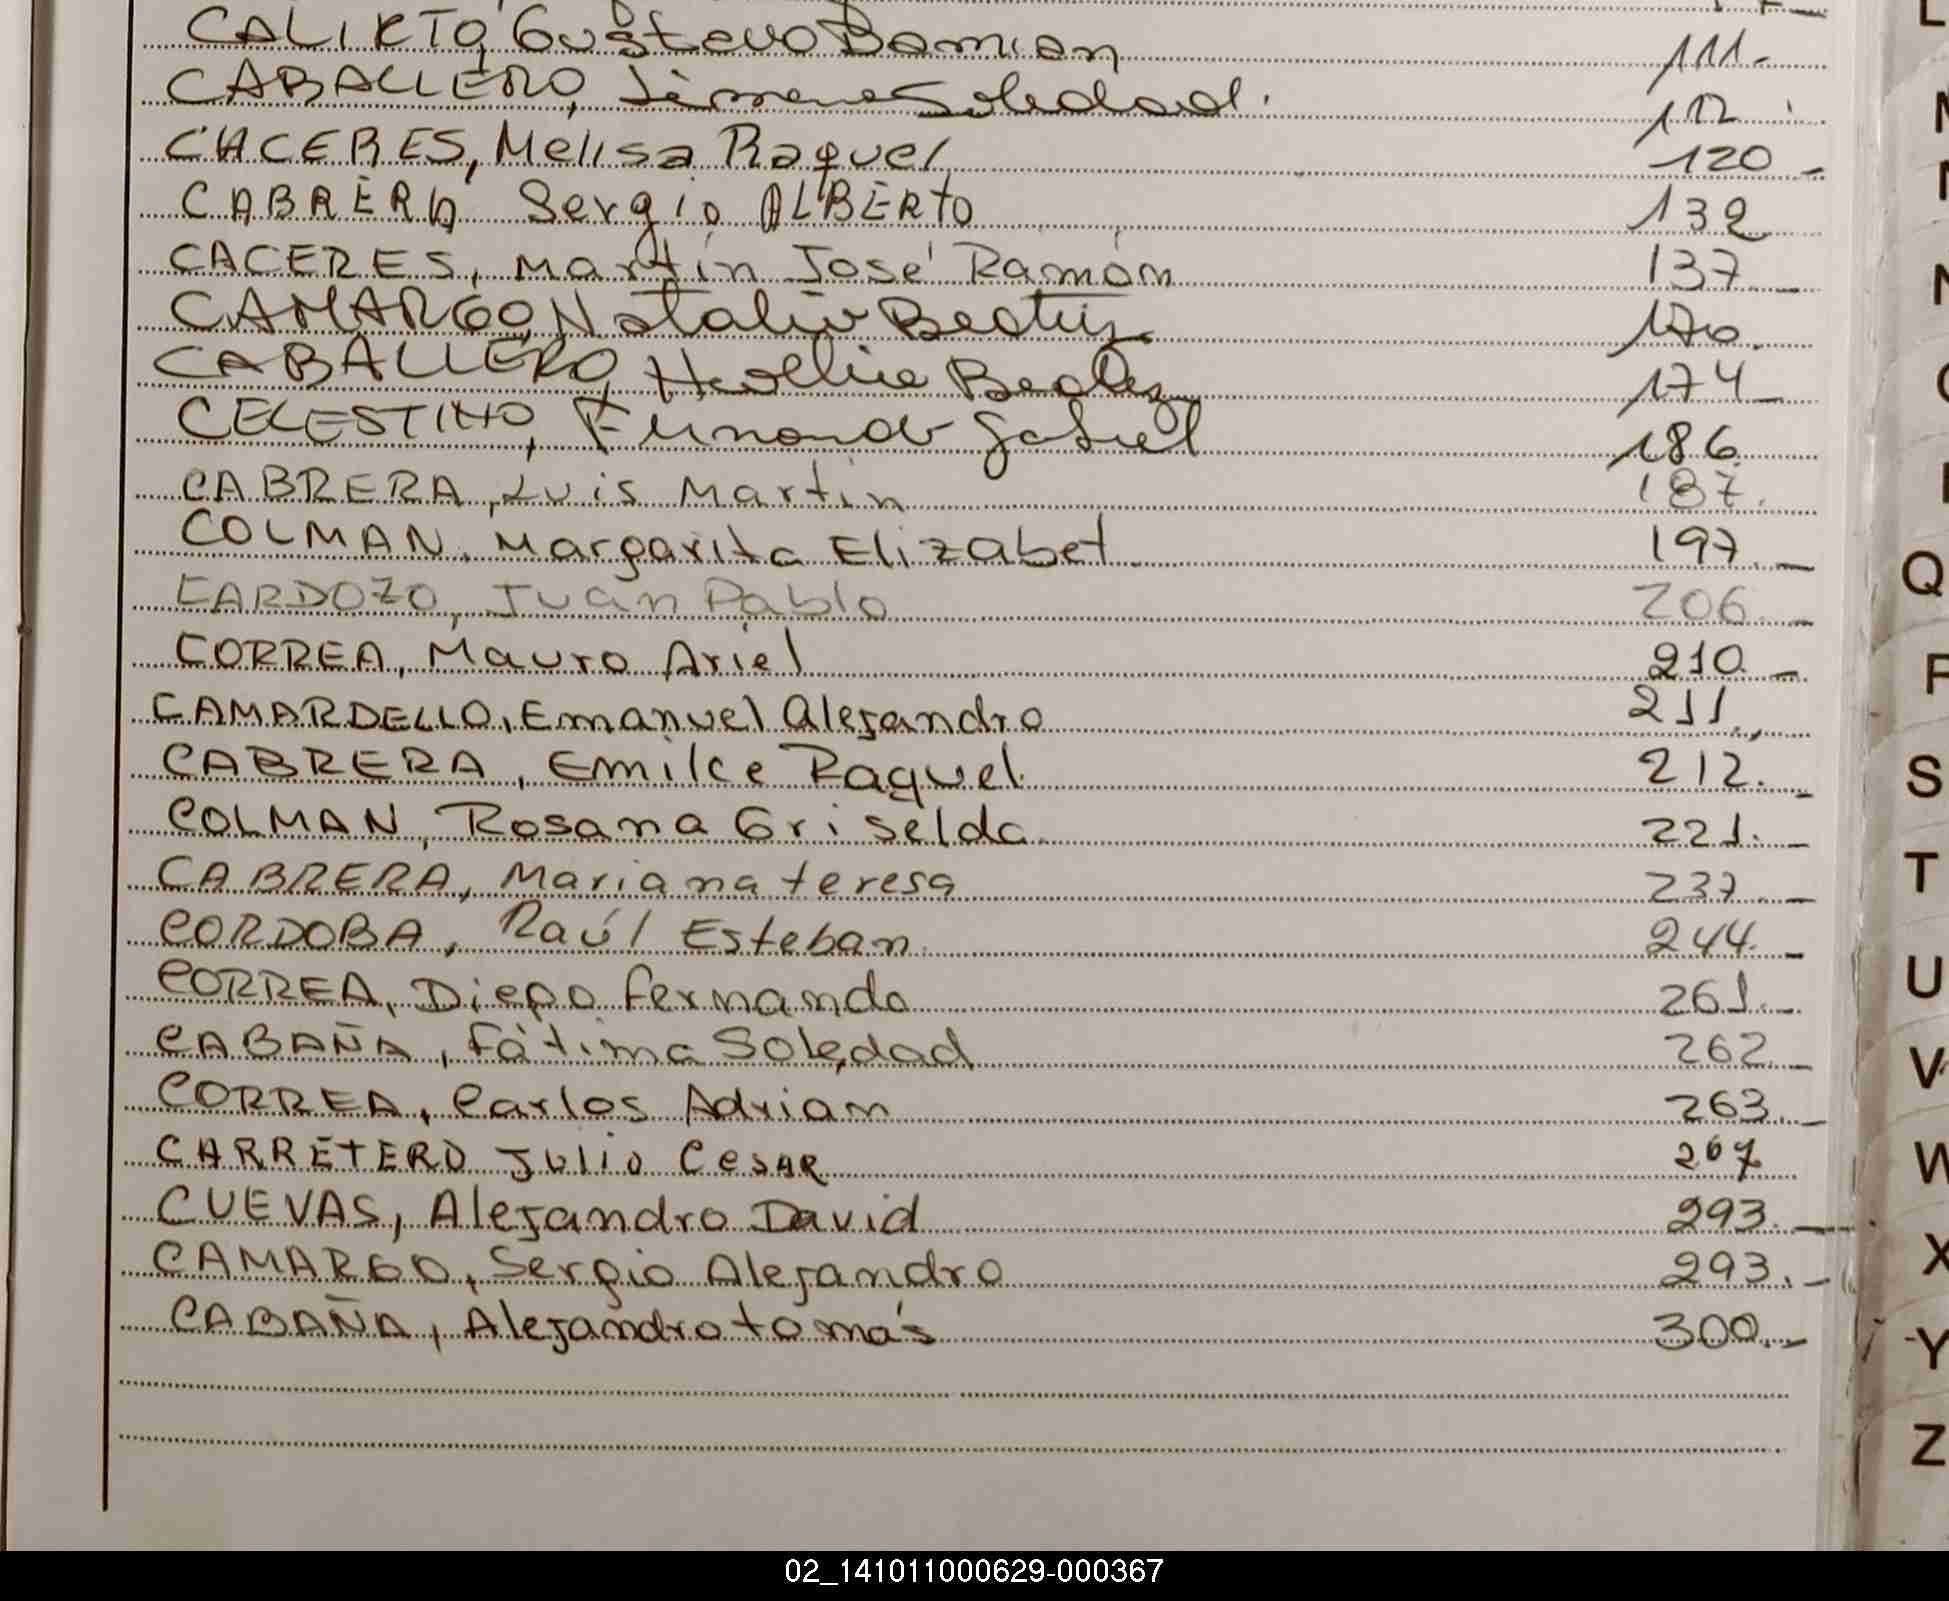 CALIXTO, Gustavo Damian 111.-
CABALLERO, Jimena Soledad. 112
CACERES, Melisa Raquel 120.-
CABRERA Sergio ALBERTO 132
CACERES, Martín José Ramón 137.-
CAMARGO, Natalia Beatriz 170.
CABALLERO, Beatriz 174.-
CELESTINO, Fernando Gabriel 186.
CABRERA, Luis Martin 187.
COLMAN, Margarita Elizabet 197.-
CARDOZO, Juan Pablo 206.-
CORREA, Mauro Ariel 210.-
CAMARDELLO, Emanuel Alejandro 211.-
CABRERA, Emilce Raquel 212.-
COLMAN, Rosana Griselda 221.-
CABRERA, Mariana teresa 237.-
CORDOBA, Raúl Esteban 244.-
CORREA, Diego fernando 261.-
CABAÑA, Fátima Soledad 262.-
CORREA, Carlos Adrian 263.-
CARRETERO Julio CesAR 267
CUEVAS, Alejandro David 293.-
CAMARGO, Sergio Alejandro 293.-
CABAÑA, Alejandro tomás 300.-
L
M
N
Q
R
S
T
U
V
W
X
Y
Z
02_141011000629-000367